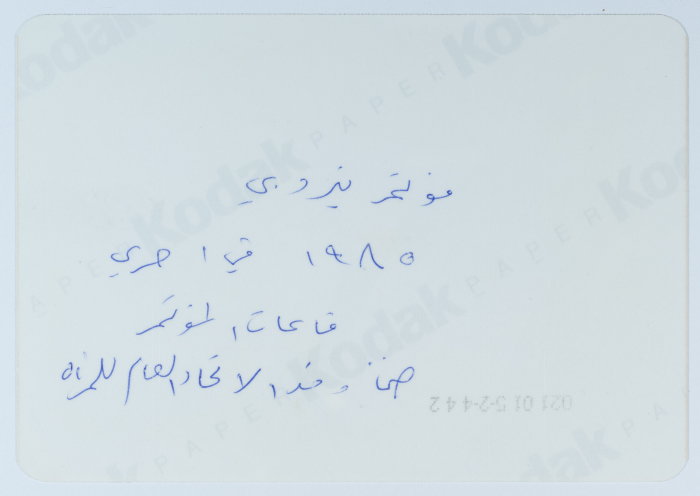 مؤتمر نيروبي
١٩٨٥ في احدي
قاعات المؤتمر
وفد الاتحاد العام للمرأة
021 01 5-2-4 4 2
Kodak
PAPER
Kodak
PAPER
Kodak
PAPER
Kodak
PAPER
Kodak
PAPER
Kodak